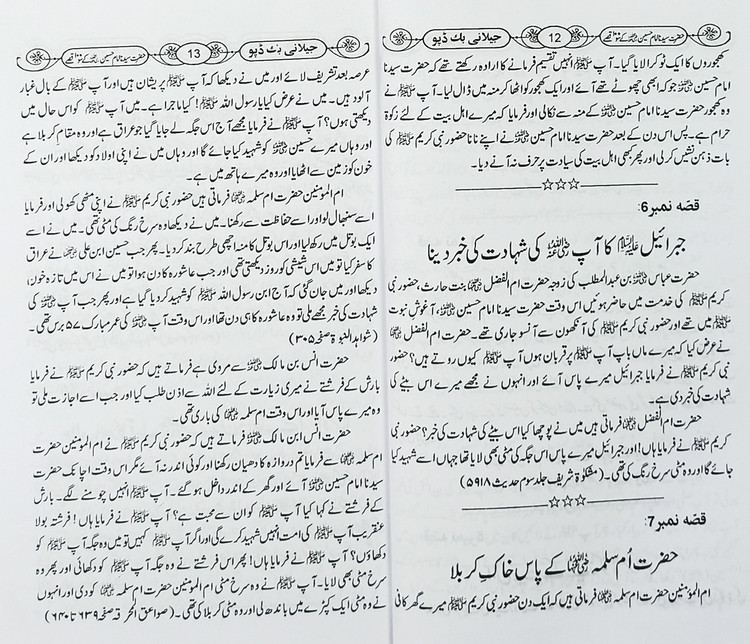 حضرت سیدنا امام حسین رضی اللہ عنہ کے 100 قصے
12
جیلانی بک ڈپو
کھجوروں کا ایک ٹوکرا لایا گیا۔ آپ ﷺ انہیں تقسیم فرمانے کا ارادہ رکھتے تھے کہ حضرت سیدنا
امام حسین رضی اللہ عنہ جو کہ ابھی چھوٹے تھے آئے اور ایک کھجور کو اٹھا کر منہ میں ڈال لیا۔ آپ ﷺ نے
وہ کھجور حضرت سیدنا امام حسین رضی اللہ عنہ کے منہ سے نکالی اور فرمایا کہ میرے اہل بیت کے لئے زکوٰۃ
حرام ہے۔ پس اس دن کے بعد حضرت سیدنا امام حسین رضی اللہ عنہ نے اپنے نانا حضور نبی کریم ﷺ کی
بات ذہن نشیں کر لی اور پھر کبھی اہل بیت کی سیادت پر حرف نہ آنے دیا۔
☆☆☆
قصہ نمبر 6:
جبرائیل علیہ السلام کا آپ رضی اللہ عنہ کی شہادت کی خبر دینا
حضرت عباس رضی اللہ عنہ بن عبدالمطلب کی زوجہ حضرت ام الفضل رضی اللہ عنہا بنت حارث، حضور نبی
کریم ﷺ کی خدمت میں حاضر ہوئیں اس وقت حضرت سیدنا امام حسین رضی اللہ عنہ، آغوش نبوت
میں تھے اور حضور نبی کریم ﷺ کی آنکھوں سے آنسو جاری تھے۔ حضرت ام الفضل رضی اللہ عنہا
نے عرض کیا کہ میرے ماں باپ آپ ﷺ پر قربان ہوں آپ ﷺ کیوں روتے ہیں؟ حضور
نبی کریم ﷺ نے فرمایا جبرائیل میرے پاس آئے اور انہوں نے مجھے میرے اس بیٹے کی
شہادت کی خبر دی ہے۔
حضرت ام الفضل رضی اللہ عنہا فرماتی ہیں میں نے پوچھا کیا اس بیٹے کی شہادت کی خبر؟ حضور نبی
کریم ﷺ نے فرمایا ہاں! اور جبرائیل میرے پاس اس جگہ کی مٹی بھی لایا تھا جہاں اسے شہید کیا
جائے گا اور وہ مٹی سرخ رنگ کی تھی۔ (مشکوٰۃ شریف جلد سوم حدیث ۵۹۱۸)
☆☆☆
قصہ نمبر 7:
حضرت اُم سلمہ رضی اللہ عنہا کے پاس خاکِ کربلا
ام المومنین حضرت ام سلمہ رضی اللہ عنہا فرماتی ہیں کہ ایک دن حضور نبی کریم ﷺ میرے گھر کافی
حضرت سیدنا امام حسین رضی اللہ عنہ کے 100 قصے
13
جیلانی بک ڈپو
عرصہ بعد تشریف لائے اور میں نے دیکھا کہ آپ ﷺ پریشان ہیں اور آپ ﷺ کے بال غبار
آلود ہیں۔ میں نے عرض کیا یا رسول اللہ ﷺ! کیا ماجرا ہے۔ میں آپ ﷺ کو اس حال میں
دیکھتی ہوں؟ آپ ﷺ نے فرمایا مجھے آج اس جگہ لے جایا گیا جو عراق ہے اور وہ مقام کربلا ہے
اور وہاں میرے حسین رضی اللہ عنہ کو شہید کیا جائے گا اور وہاں میں نے اپنی اولاد کو دیکھا اور ان کے
خون کو زمین سے اٹھایا اور وہ میرے ہاتھ میں ہے۔
ام المومنین حضرت ام سلمہ رضی اللہ عنہا فرماتی ہیں حضور نبی کریم ﷺ نے اپنی مٹھی کھولی اور فرمایا
اسے سنبھال لو اور اسے حفاظت سے رکھنا۔ میں نے دیکھا وہ سرخ رنگ کی مٹی تھی۔ میں نے اسے
ایک بوتل میں رکھ لیا اور اس بوتل کا منہ اچھی طرح بند کر دیا۔ پھر جب حسین ابن علی رضی اللہ عنہ نے عراق
کا سفر کیا تو میں اس شیشی کو روز دیکھتی تھی اور جب عاشورہ کا دن ہوا تو میں نے اس میں تازہ خون
دیکھا اور میں جان گئی کہ آج ابن رسول اللہ ﷺ کو شہید کر دیا گیا ہے اور پھر جب آپ رضی اللہ عنہ کی
شہادت کی خبر مجھے ملی تو وہ عاشورہ کا ہی دن تھا اور اس وقت آپ رضی اللہ عنہ کی عمر مبارک ۵۷ برس تھی۔
(شواہد النبوۃ صفحہ ۳۰۵)
حضرت انس بن مالک رضی اللہ عنہ سے مروی ہے فرماتے ہیں کہ حضور نبی کریم ﷺ نے فرمایا
بارش کے فرشتے نے میری زیارت کے لئے اللہ سے اذن طلب کیا اور جب اسے اجازت ملی تو
وہ میرے پاس آیا اور اس وقت ام سلمہ رضی اللہ عنہا کی باری تھی۔
حضرت انس ابن مالک رضی اللہ عنہ فرماتے ہیں کہ حضور نبی کریم ﷺ نے ام المومنین حضرت
ام سلمہ رضی اللہ عنہا سے فرمایا تم دروازہ کا دھیان رکھنا اور کوئی اندر نہ آئے مگر اس وقت اچانک حضرت
سیدنا امام حسین رضی اللہ عنہ آئے اور گھر کے اندر داخل ہو گئے۔ آپ ﷺ انہیں چومنے لگے۔ بارش
کے فرشتے نے کہا کیا آپ ﷺ کو ان سے محبت ہے؟ آپ ﷺ نے فرمایا ہاں! فرشتہ بولا
عنقریب آپ ﷺ کی امت انہیں شہید کرے گی اور اگر آپ ﷺ کہیں تو میں وہ جگہ آپ کو
دکھاؤں؟ آپ ﷺ نے فرمایا ہاں! پھر اس فرشتے نے وہ جگہ آپ ﷺ کو دکھائی اور پھر وہ
سرخ مٹی بھی لایا۔ آپ ﷺ نے وہ سرخ مٹی ام المومنین حضرت ام سلمہ رضی اللہ عنہا کو دی اور انہوں
نے وہ مٹی ایک کپڑے میں باندھ لی اور وہ مٹی کربلا کی تھی۔ (صواعق المحرقہ صفحہ ۶۳۹ تا ۶۴۰)